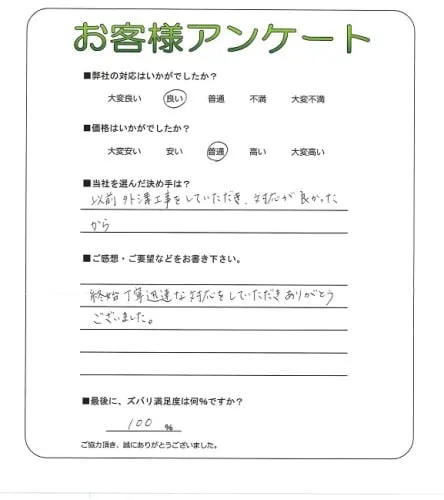 お客様アンケート
■弊社の対応はいかがでしたか？
大変良い 良い 普通 不満 大変不満
■価格はいかがでしたか？
大変安い 安い 普通 高い 大変高い
■当社を選んだ決め手は？
以前外溝工事をしていただき、対応が良かった
から
■ご感想・ご要望などをお書き下さい。
終始丁寧迅速な対応をしていただきありがとう
ございました。
■最後に、ズバリ満足度は何％ですか？
100 ％
ご協力頂き、誠にありがとうございました。